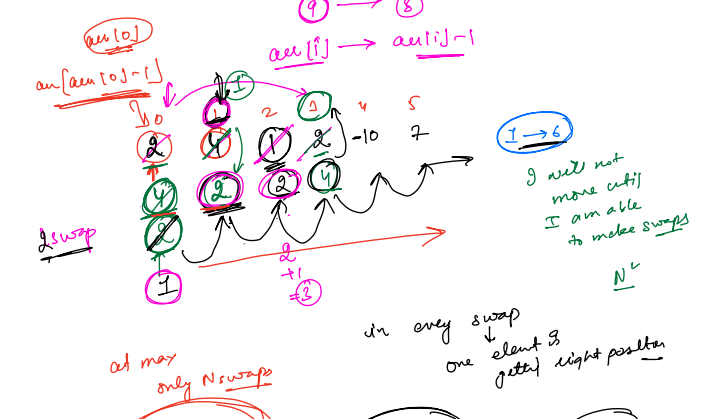 9 → 8
arr[0]
arr[i] → arr[i]-1
arr[arr[0]-1]
1
0 1 2 3 4 5
2 4 1 2 -10 7
1 → 6
4 2 2 4
I will not
move until
I am able
to make swaps
2 swap
2
2
+1
=3
1
N
in every swap
↓
one element is
getting right position
at max
only N swaps